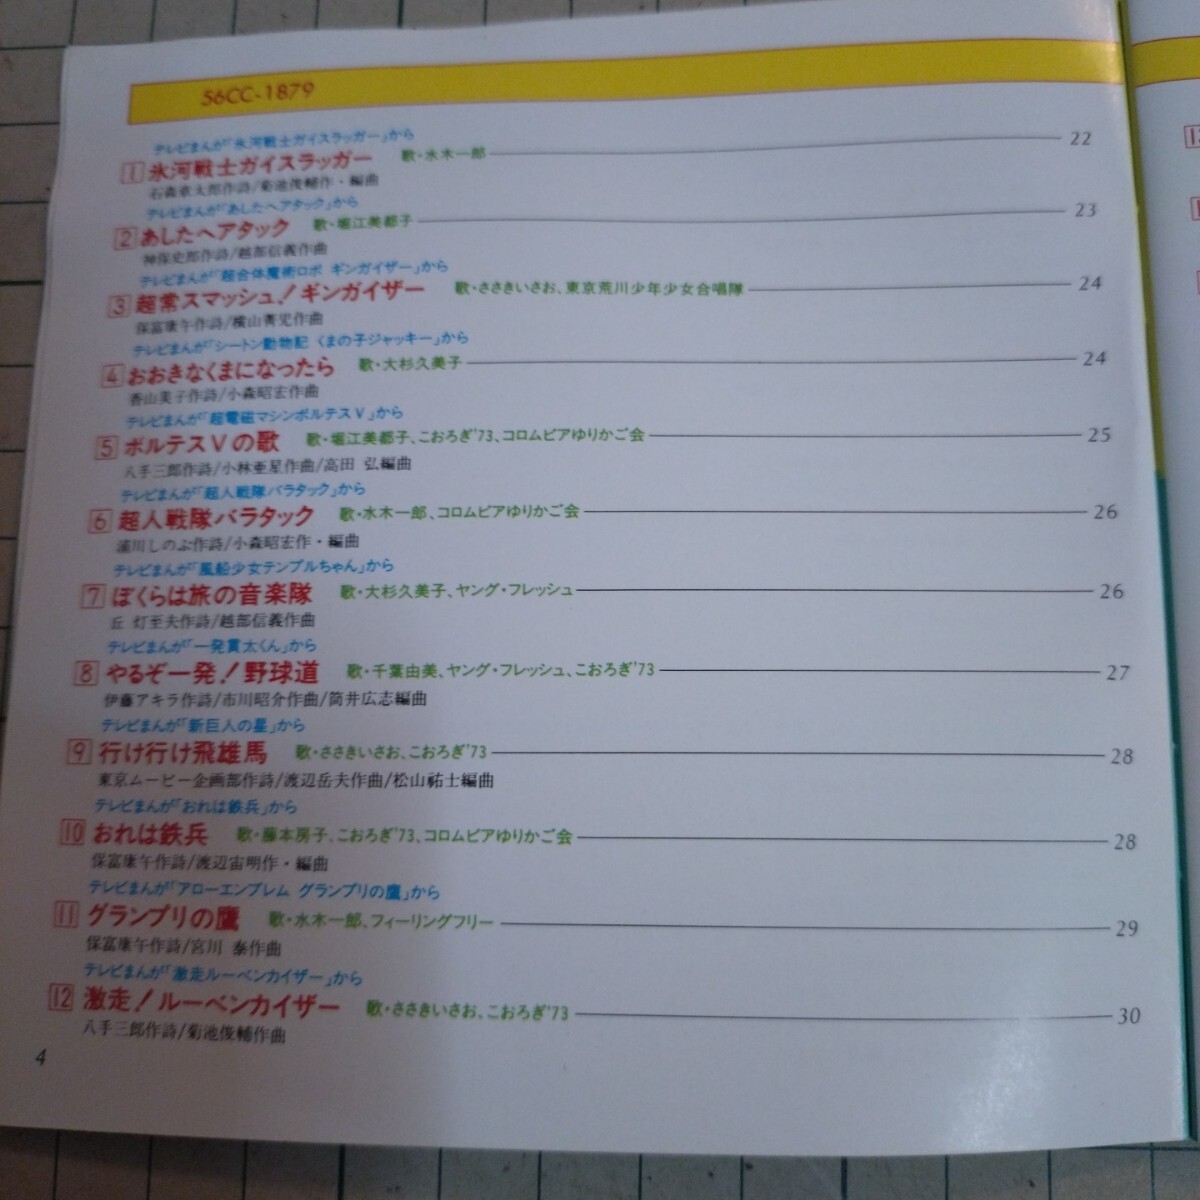 56CC-1879
テレビまんが「氷河戦士ガイスラッガー」から
1 氷河戦士ガイスラッガー 歌・水木一郎 22
石森章太郎作詩/菊池俊輔作・編曲
テレビまんが「あしたへアタック」から
2 あしたへアタック 歌・堀江美都子 23
神保史郎作詩/越部信義作曲
テレビまんが「超合体魔術ロボ ギンガイザー」から
3 超常スマッシュ!ギンガイザー 歌・ささきいさお、東京荒川少年少女合唱隊 24
保富康午作詩/横山菁児作曲
テレビまんが「シートン動物記 くまの子ジャッキー」から
4 おおきなくまになったら 歌・大杉久美子 24
香山美子作詩/小森昭宏作曲
テレビまんが「超電磁マシンボルテスV」から
5 ボルテスVの歌 歌・堀江美都子、こおろぎ'73、コロムビアゆりかご会 25
八手三郎作詩/小林亜星作曲/高田 弘編曲
テレビまんが「超人戦隊バラタック」から
6 超人戦隊バラタック 歌・水木一郎、コロムビアゆりかご会 26
浦川しのぶ作詩/小森昭宏作・編曲
テレビまんが「風船少女テンプルちゃん」から
7 ぼくらは旅の音楽隊 歌・大杉久美子、ヤング・フレッシュ 26
丘 灯至夫作詩/越部信義作曲
テレビまんが「一発貫太くん」から
8 やるぞ一発!野球道 歌・千葉由美、ヤング・フレッシュ、こおろぎ'73 27
伊藤アキラ作詩/市川昭介作曲/筒井広志編曲
テレビまんが「新巨人の星」から
9 行け行け飛雄馬 歌・ささきいさお、こおろぎ'73 28
東京ムービー企画部作詩/渡辺岳夫作曲/松山祐士編曲
テレビまんが「おれは鉄兵」から
10 おれは鉄兵 歌・藤本房子、こおろぎ'73、コロムビアゆりかご会 28
保富康午作詩/渡辺宙明作・編曲
テレビまんが「アローエンブレム グランプリの鷹」から
11 グランプリの鷹 歌・水木一郎、フィーリングフリー 29
保富康午作詩/宮川 泰作曲
テレビまんが「激走ルーベンカイザー」から
12 激走!ルーベンカイザー 歌・ささきいさお、こおろぎ'73 30
八手三郎作詩/菊池俊輔作曲
4